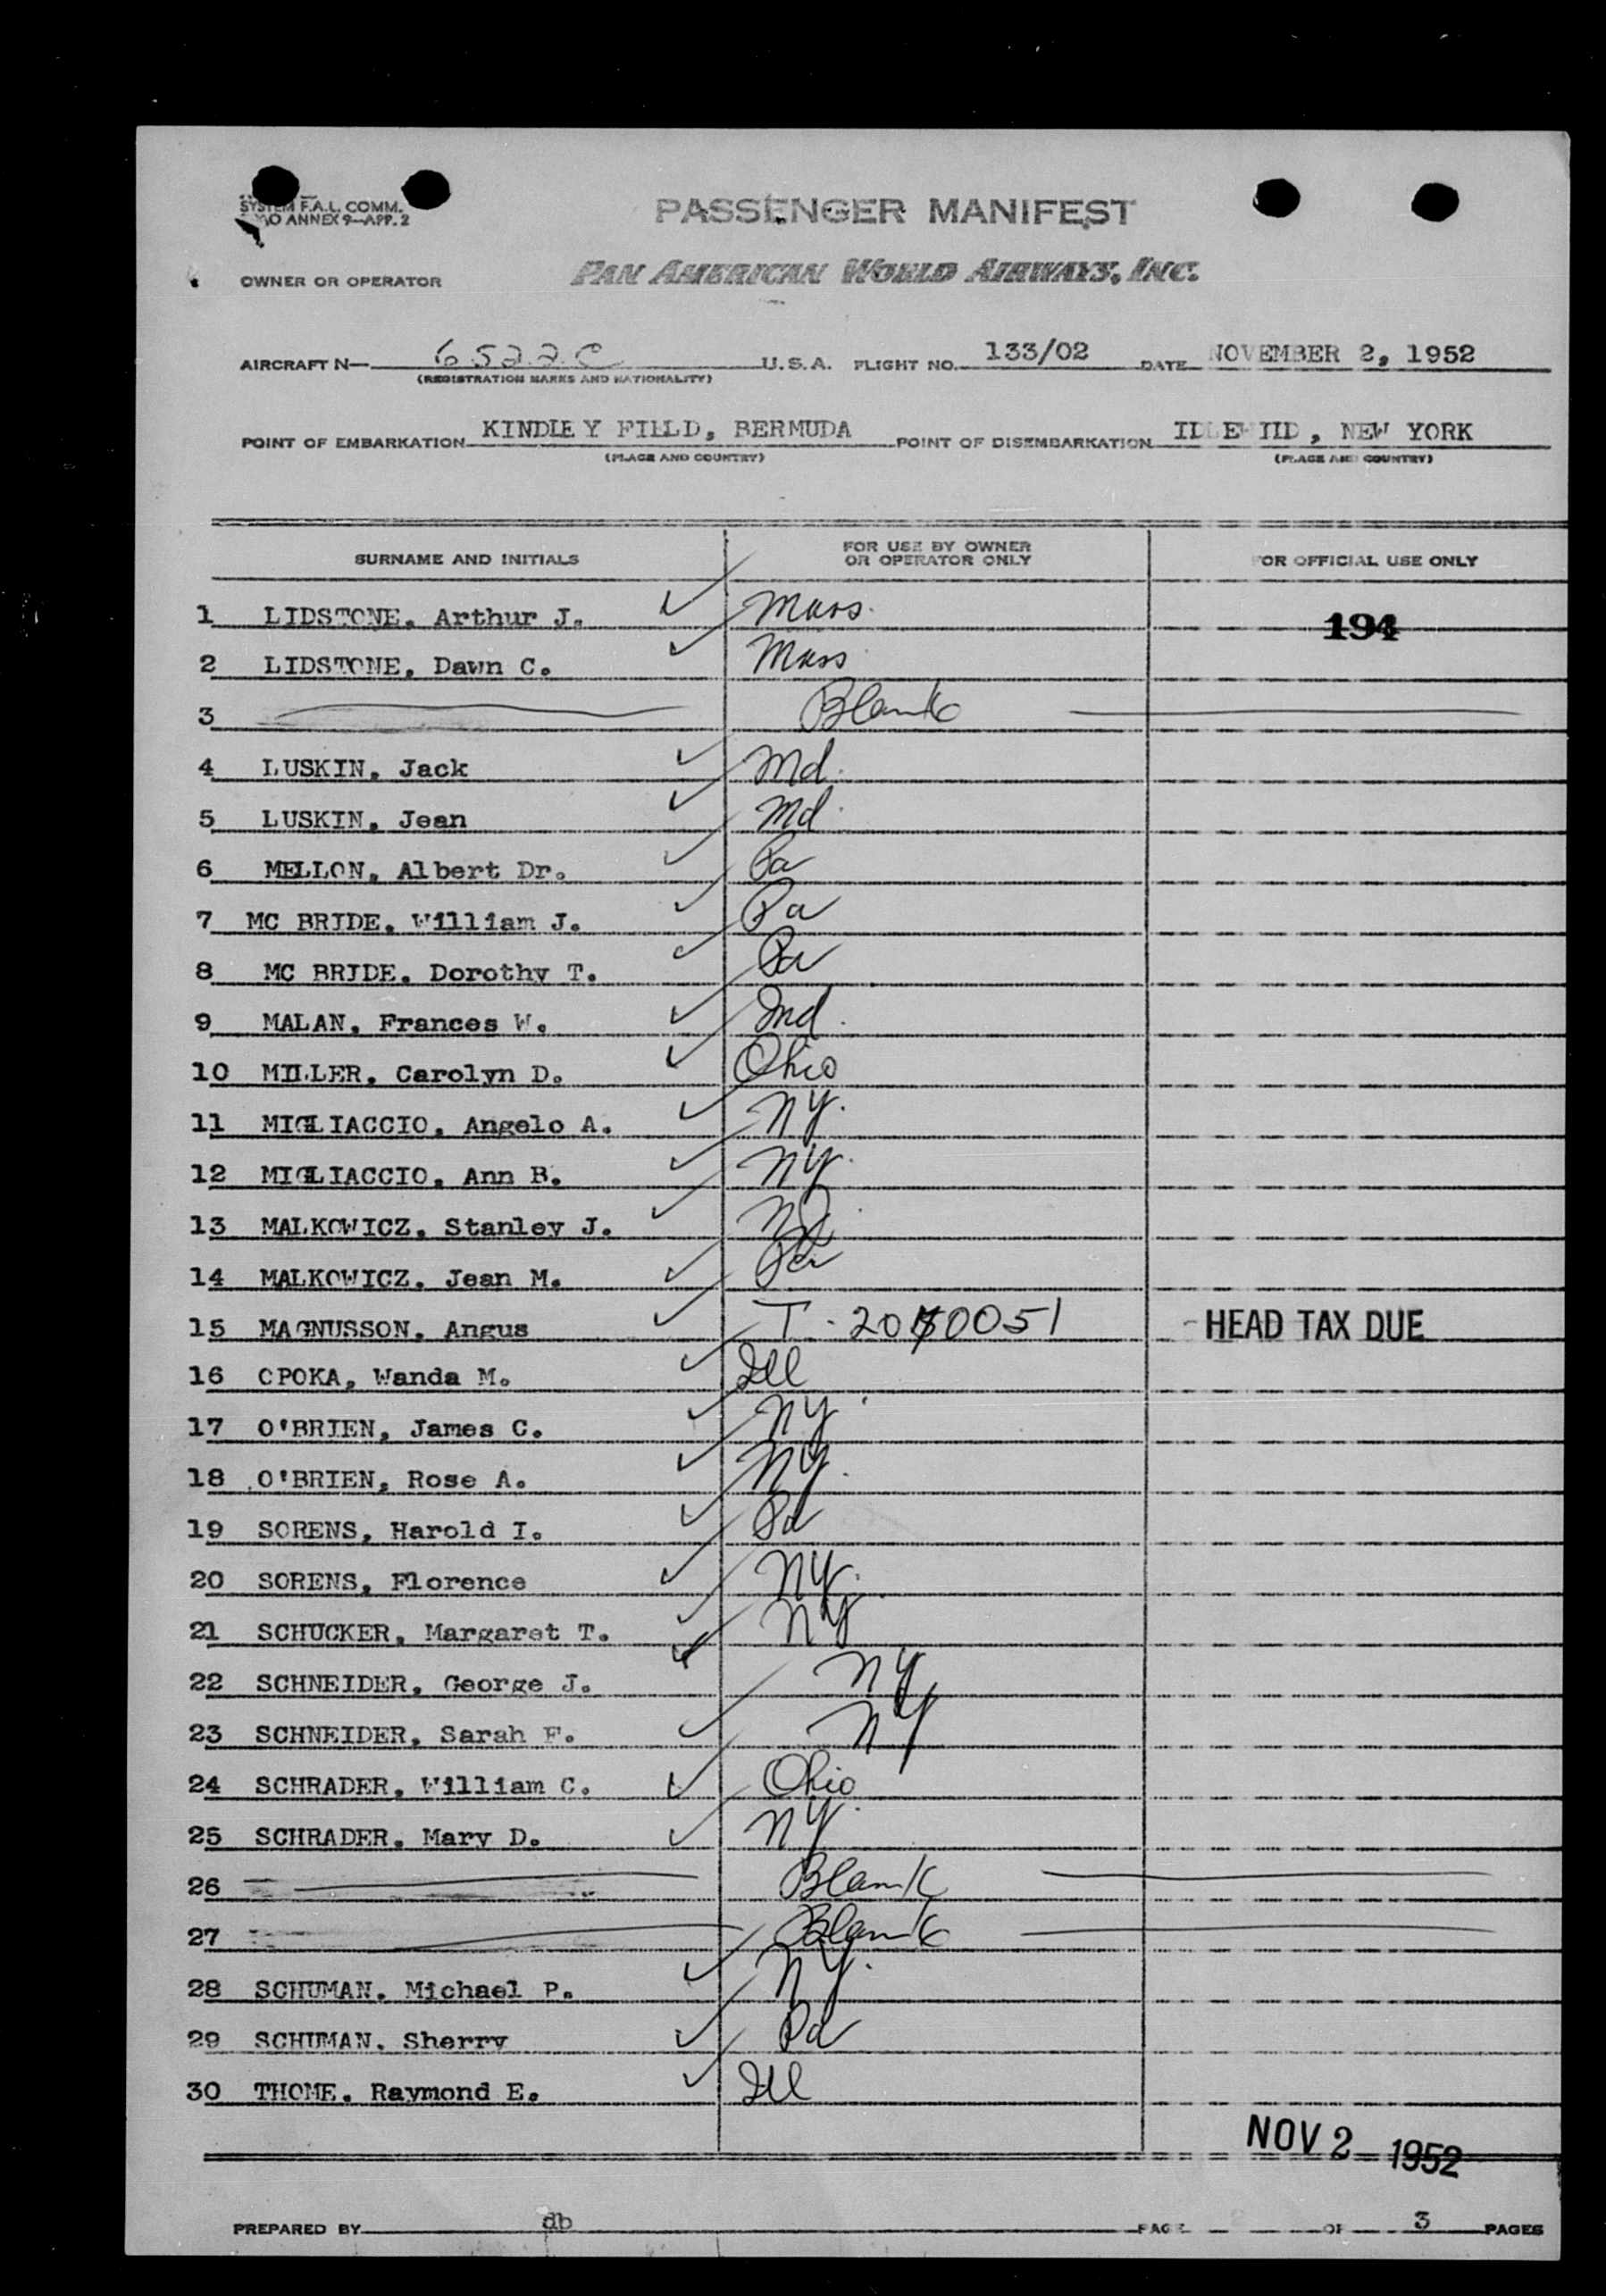 SYSTEM F.A.L. COMM.
O ANNEX 9—APP. 2
PASSENGER MANIFEST
OWNER OR OPERATOR PAN AMERICAN WORLD AIRWAYS, INC.
AIRCRAFT N— 6522C U.S.A. FLIGHT NO. 133/02 DATE NOVEMBER 2, 1952
(REGISTRATION MARKS AND NATIONALITY)
POINT OF EMBARKATION KINDLEY FIELD, BERMUDA POINT OF DISEMBARKATION IDLEWILD, NEW YORK
(PLACE AND COUNTRY) (PLACE AND COUNTRY)
SURNAME AND INITIALS FOR USE BY OWNER OR OPERATOR ONLY FOR OFFICIAL USE ONLY
1 LIDSTONE, Arthur J. Mass. 194
2 LIDSTONE, Dawn C. Mass
3 Blank
4 LUSKIN, Jack Md.
5 LUSKIN, Jean Md.
6 MELLON, Albert Dr. Pa
7 MC BRIDE, William J. Pa
8 MC BRIDE, Dorothy T. Pa
9 MALAN, Frances W. Ind.
10 MILLER, Carolyn D. Ohio
11 MIGLIACCIO, Angelo A. NY.
12 MIGLIACCIO, Ann B. NY.
13 MALKOWICZ, Stanley J.
14 MALKOWICZ, Jean M. Pa
15 MAGNUSSON, Angus T- HEAD TAX DUE
16 OPOKA, Wanda M. Ill
17 O'BRIEN, James C. NY
18 O'BRIEN, Rose A. NY.
19 SORENS, Harold I. Pa
20 SORENS, Florence NY.
21 SCHUCKER, Margaret T. NY
22 SCHNEIDER, George J. NY
23 SCHNEIDER, Sarah F. NY
24 SCHRADER, William C. Ohio
25 SCHRADER, Mary D. NY.
26 Blank
27 Blank
28 SCHUMAN, Michael P. NY.
29 SCHUMAN, Sherry Pa
30 THOME, Raymond E. Ill
NOV 2 1952
PREPARED BY db PAGE 2 OF 3 PAGES